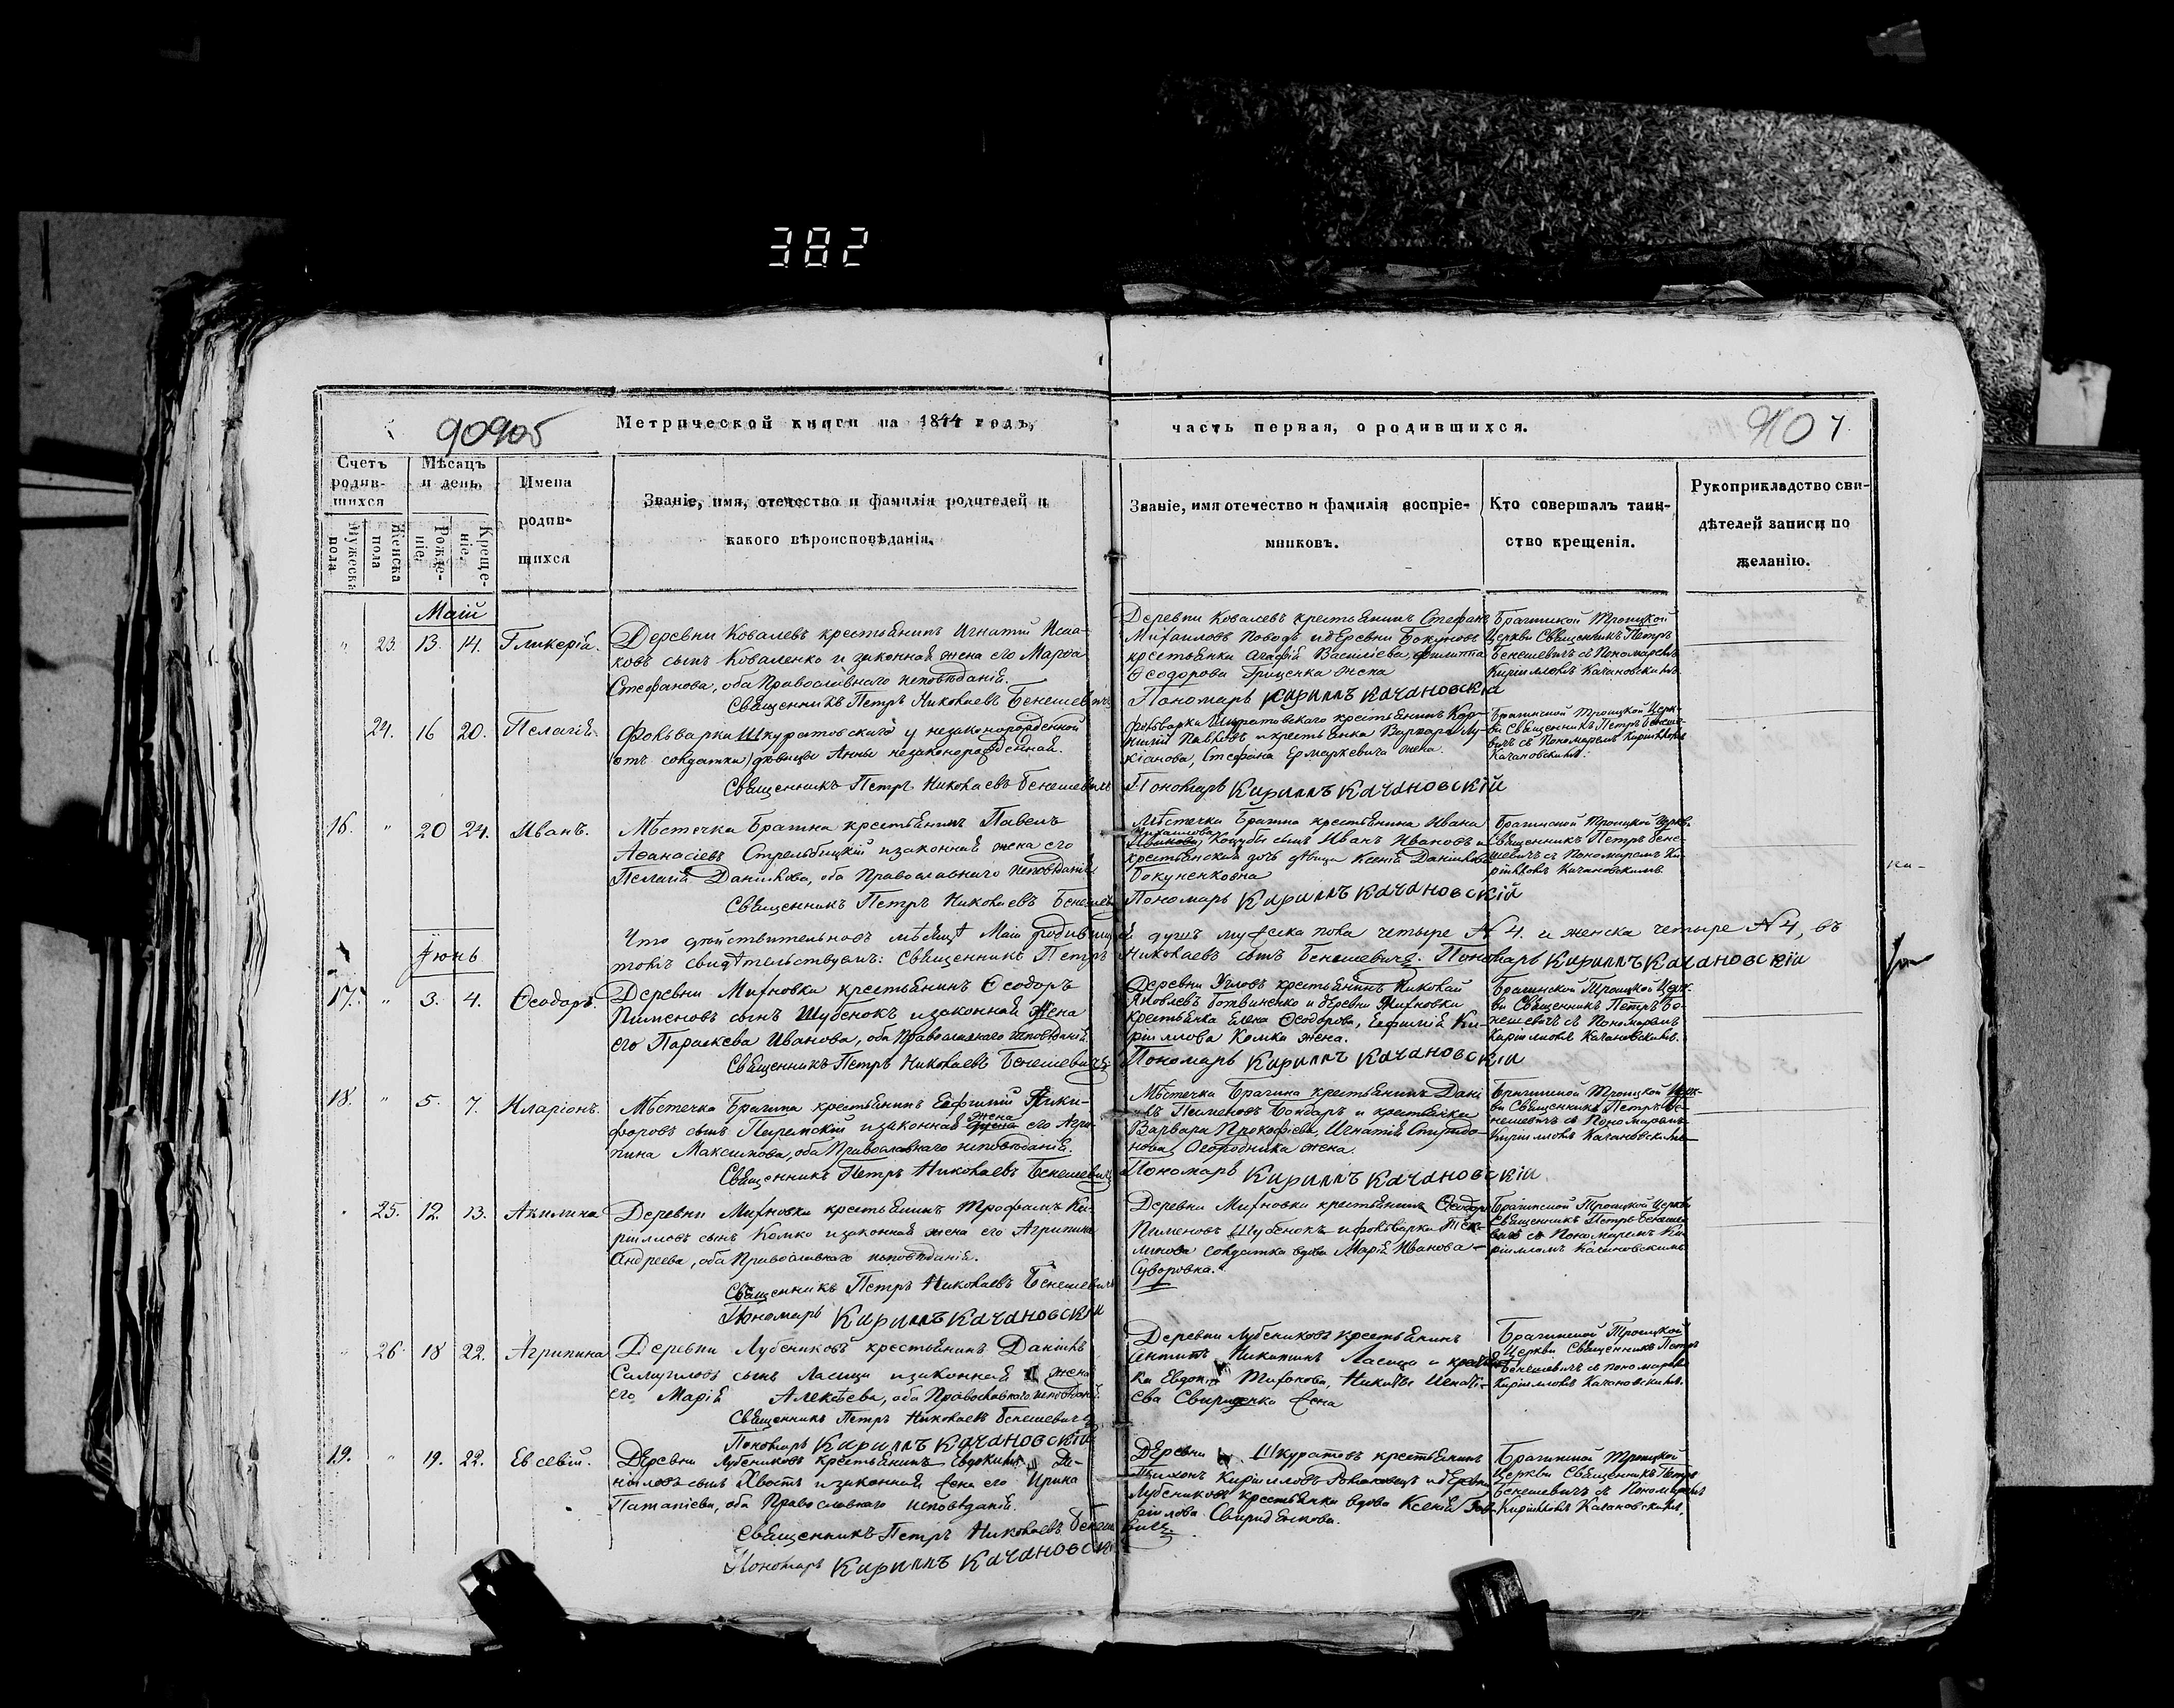 382
Метрической книги на 1844 годъ,
часть первая, о родившихся.
Счетъ родив-шихся
Мѣсяцъ и день.
Имена родив-шихся
Званіе, имя, отечество и фамилія родителей и какого вѣроисповѣданія.
Званіе, имя отечество и фамилія воспріе-мниковъ.
Кто совершалъ таин-ство крещенія.
Рукоприкладство сви-дѣтелей записи по желанію.
Мужеска пола
Женска пола
Рожде-ніе.
Креще-ніе.
Маій
23. 13. 14. Гликерія.
Деревни Ковалевъ крестьянинъ Игнатій Исаа-
ковъ сынъ Коваленко и законная жена его Марѳа
Стефанова, оба Православнаго исповѣданія.
Священникъ Петръ Николаевъ Бенешевичъ
Деревни Ковалевъ крестьянинъ Стефанъ
Михаиловъ и деревни
крестьянки Агафія Василіева, Филиппа
Ѳеодорова Гриценка жена
Пономарь Кириллъ Качановскій
Брагинской Троицкой
Церкви Священникъ Петръ
Бенешевичъ съ Пономаремъ
Кирилломъ Качановскимъ.
24. 16 20. Пелагія.
Фольварка Шкуратовскаго у незаконорожденной
(отъ солдатки) дѣвицы Анны незаконорожденная.
Священникъ Петръ Николаевъ Бенешевичъ
Фольварка Шкуратовскаго крестьянинъ
Павловъ и крестьянка Варвара Лу-
кіанова, Стефана Ермаркевича жена.
Пономарь Кириллъ Качановскій
Брагинской Троицкой Церк-
ви Священникъ Петръ Бенеше-
вичъ съ Пономаремъ Кирилломъ
Качановскимъ.
16. " 20 24. Иванъ.
Мѣстечка Брагина крестьянинъ Павелъ
Аѳанасіевъ Стрельбицкій и законная жена его
Пелагія Данилова, оба Православнаго исповѣданія
Священникъ Петръ Николаевъ Бенешев
Мѣстечка Брагина крестьянина Ивана
Михаилова
Коцубы сынъ Иванъ Ивановъ и
крестьянская дочь дѣвица Ксенія Данилова
Бокуненковна
Пономарь Кириллъ Качановскій
Брагинской Троицкой Церкви
Священникъ Петръ Бене-
шевичъ съ Пономаремъ Ки-
рилломъ Качановскимъ.
Что дѣйствительно въ мѣсяцѣ Маіи родившихся душъ мужеска пола четыре N 4. и женска четыре N 4, въ
томъ свидѣтельствуемъ: Священникъ Петръ Николаевъ сынъ Бенешевичъ. Пономарь Кириллъ Качановскій
Іюнь
17. " 3. 4. Ѳеодоръ.
Деревни Михновки крестьянинъ Ѳеодоръ
Пименовъ сынъ Шубенокъ и законная жена
его Параскева Иванова, оба Православнаго исповѣданія.
Священникъ Петръ Николаевъ Бенешевичъ
Деревни Угловъ крестьянинъ Николай
Яковлевъ Ботвиненко и деревни Михновки
крестьянка Елена Ѳеодорова, Евфимія Ки-
риллова Комка жена.
Пономарь Кириллъ Качановскій
Брагинской Троицкой Церк-
ви Священникъ Петръ Бе-
нешевичъ съ Пономаремъ
Кирилломъ Качановскимъ.
18. " 5. 7. Иларіонъ.
Мѣстечка Брагина крестьянинъ Евфимій Ники-
форовъ сынъ и законная жена его Агри-
пина Максимова, оба Православнаго исповѣданія.
Священникъ Петръ Николаевъ Бенешевичъ
Мѣстечка Брагина крестьянинъ Дані
лъ Пименовъ Бондарь и крестьянка
Варвара Прокофіева, Игнатія Спиридо-
нова Огородника жена.
Пономарь Кириллъ Качановскій
Брагинской Троицкой Церк-
ви Священникъ Петръ Бе-
нешевичъ съ Пономаремъ
Кирилломъ Качановскимъ
25. 12. 13. Акилина
Деревни Михновки крестьянинъ Трофимъ Ки-
рилловъ сынъ Комко и законная жена его Агрипина
Андреева, оба Православнаго исповѣданія.
Священникъ Петръ Николаевъ Бенешевичъ
Пономарь Кириллъ Качановскій
Деревни Михновки крестьянинъ Ѳеодоръ
Пименовъ Шубенокъ и фольварка
солдатка вдова Марія Иванова
Суворовка.
Брагинской Троицкой Церкви
Священникъ Петръ Бенеше-
вичъ съ Пономаремъ Ки-
рилломъ Качановскимъ
26 18 22. Агрипина
Деревни Лубениковъ крестьянинъ Данілъ
Самуиловъ сынъ Ласица и законная жена
его Марія Алексѣева, оба Православнаго исповѣданія.
Священникъ Петръ Николаевъ Бенешевичъ
Пономарь Кириллъ Качановскій
Деревни Лубениковъ крестьянинъ
Антипъ Никитинъ Ласица и крестьян-
ка Евдокія Тихонова, Никиты Игнаті-
ева Свириденка жена
Брагинской Троицкой
Церкви Священникъ Петръ
Бенешевичъ съ пономаремъ
Кирилломъ Качановскимъ.
19. " 19. 22. Евсевій.
Деревни Лубениковъ крестьянинъ Евдокимъ Да-
ниловъ сынъ Хвостъ и законная жена его Ирина
Патапіева, оба Православнаго исповѣданія.
Священникъ Петръ Николаевъ Бенешевичъ.
Пономарь Кириллъ Качановскій
Деревни Шкуратовъ крестьянинъ
Тихонъ Кирилловъ и деревни
Лубениковъ крестьянка вдова Ксенія
Свириденкова.
Брагинской Троицкой
Церкви Священникъ Петръ
Бенешевичъ съ Пономаремъ
Кирилломъ Качановскимъ.